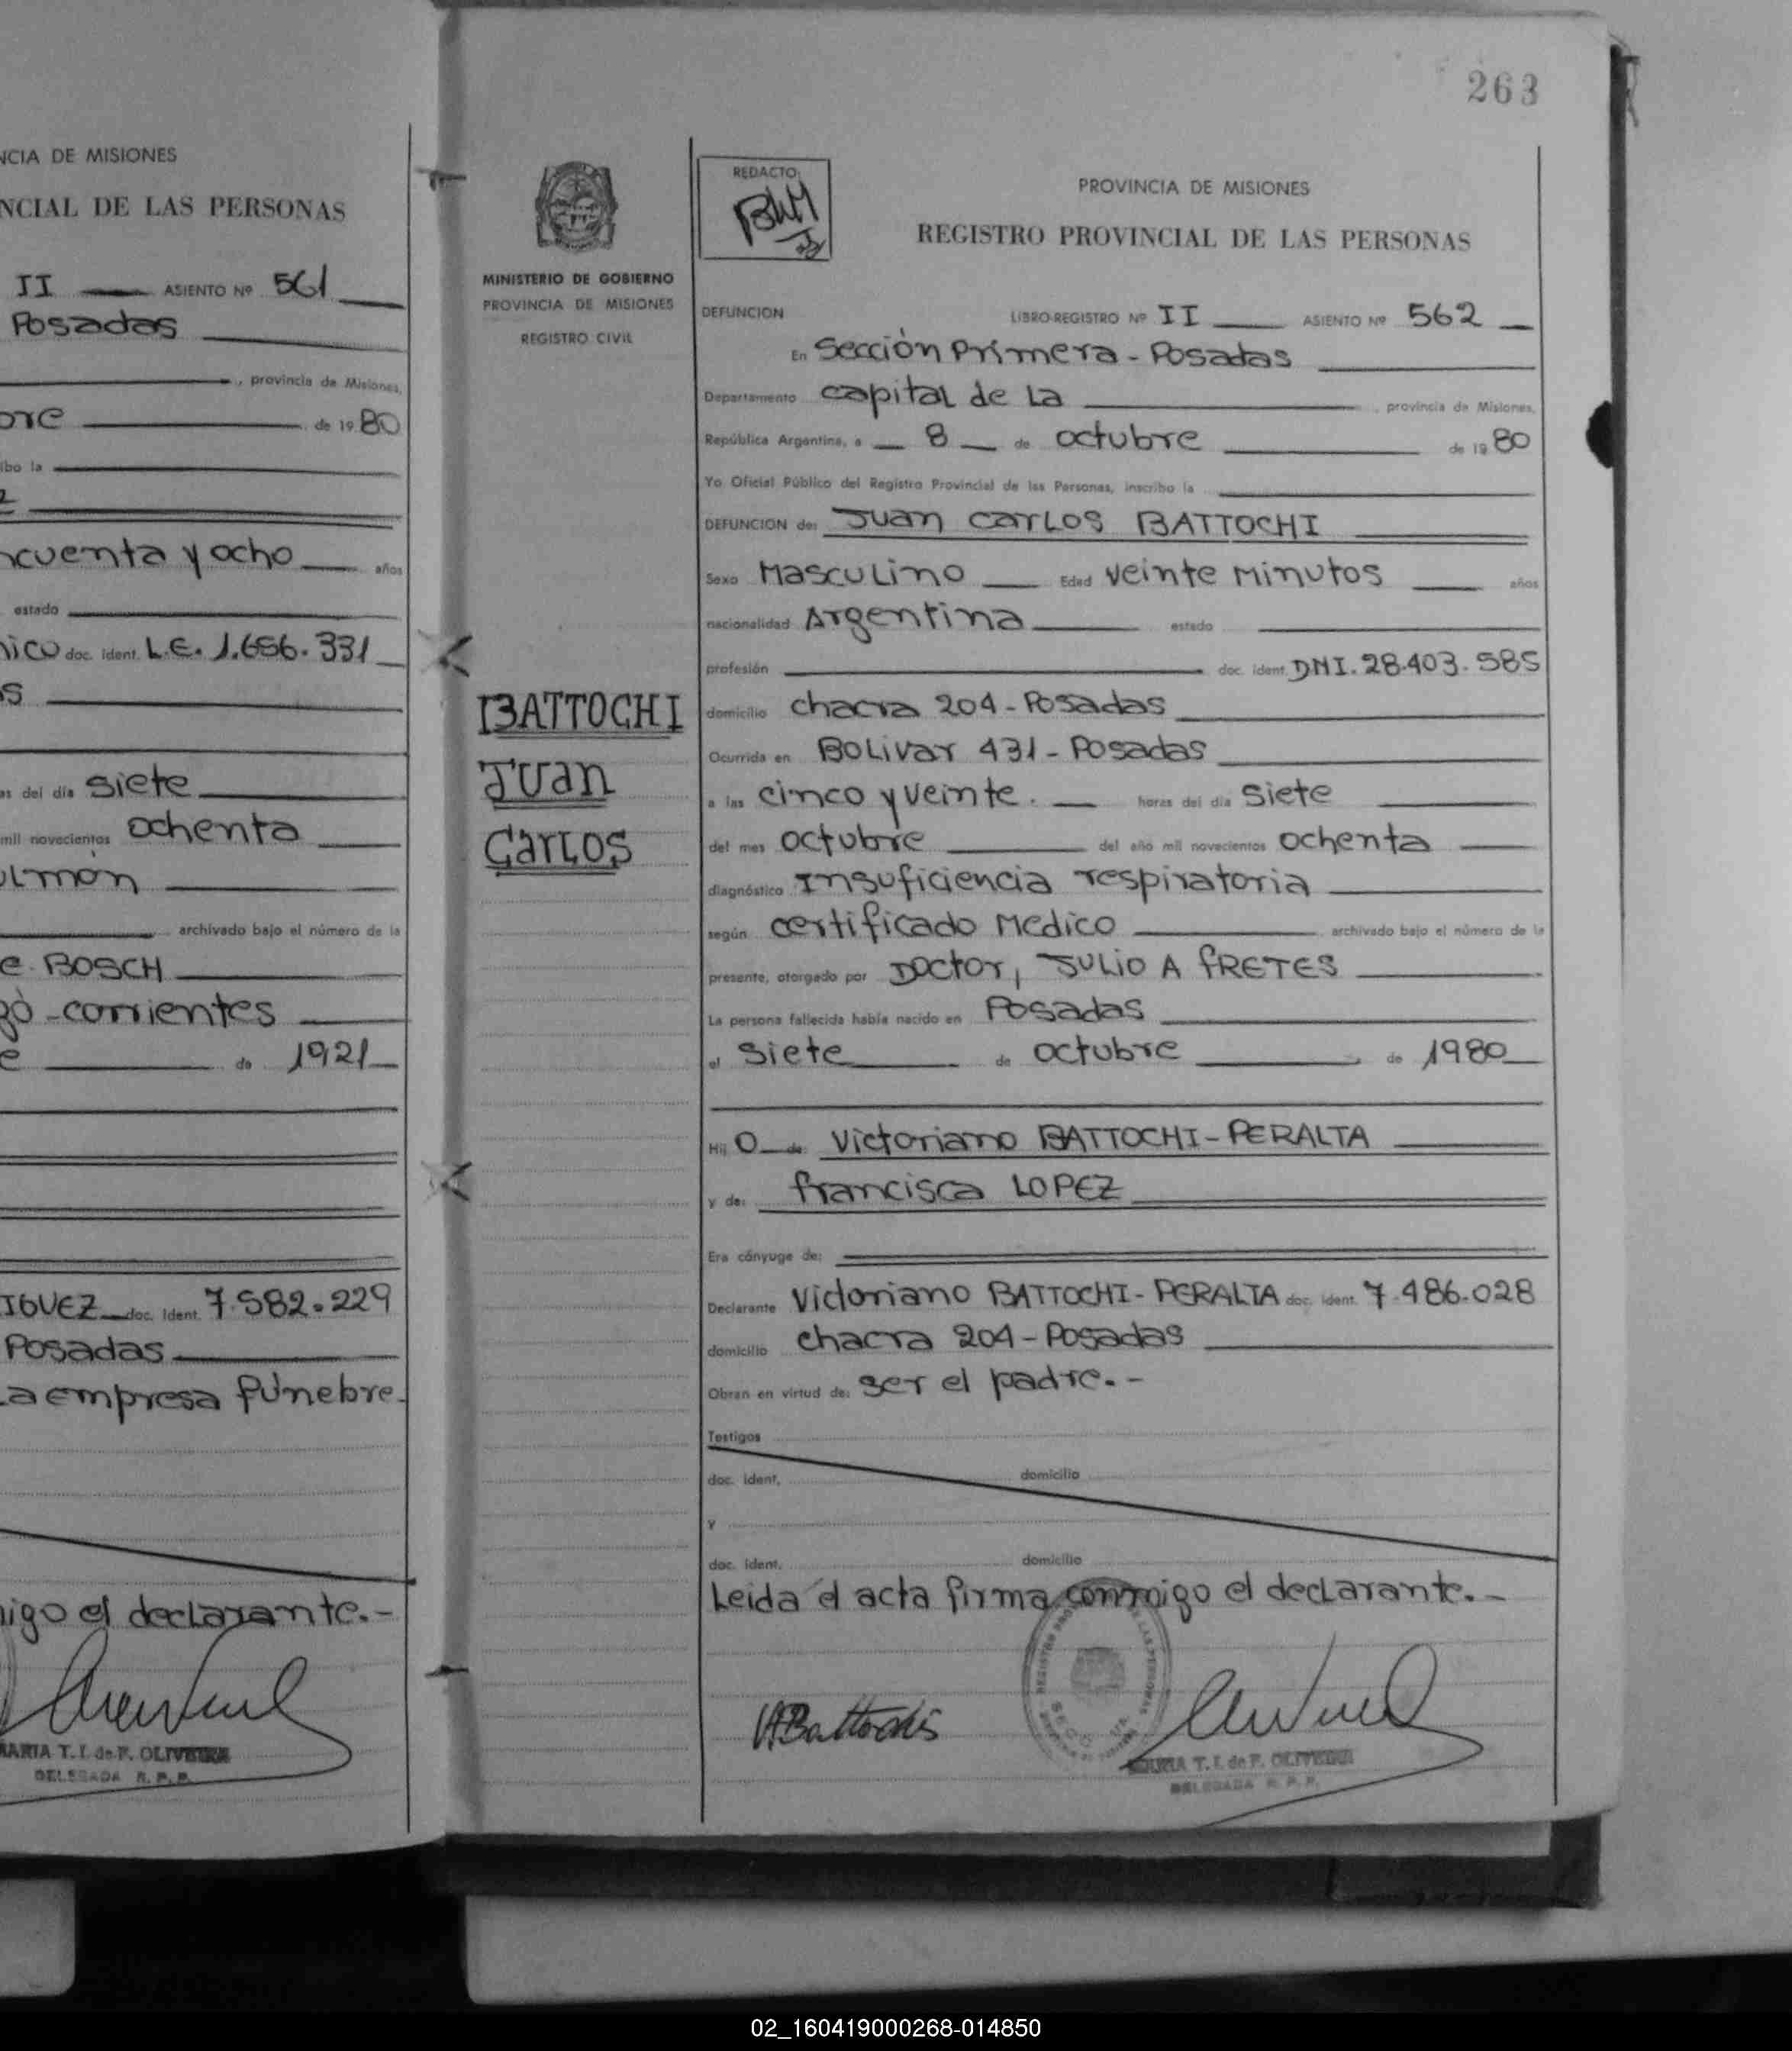 NCIA DE MISIONES
NCIAL DE LAS PERSONAS
II ASIENTO Nº 561
Posadas
, provincia de Misiones,
bre de 1980
ibo la
ncuenta y ocho años
estado
nico doc. ident. L.E. 1.656.331
s
as del día siete
mil novecientos ochenta
ulmón
archivado bajo el número de la
e. BOSCH
gò - corrientes
e de 1921
IGUEZ doc. ident. 7.582.229
Posadas
La empresa fúnebre.
migo el declarante.-
MARIA T. I. de F. OLIVEIRA
DELEGADA R. P. P.
263
MINISTERIO DE GOBIERNO
PROVINCIA DE MISIONES
REGISTRO CIVIL
BATTOCHI
Juan
Carlos
REDACTO:
PROVINCIA DE MISIONES
REGISTRO PROVINCIAL DE LAS PERSONAS
DEFUNCION LIBRO-REGISTRO Nº II ASIENTO Nº 562
En Sección Primera - Posadas
Departamento capital de La , provincia de Misiones,
República Argentina, a 8 de octubre de 1980
Yo Oficial Público del Registro Provincial de las Personas, inscribo la
DEFUNCION de: Juan Carlos BATTOCHI
Sexo Masculino Edad veinte minutos años
nacionalidad Argentina estado
profesión doc. ident. DNI. 28.403.585
domicilio chacra 204 - Posadas
Ocurrida en Bolivar 431 - Posadas
a las cinco y veinte. horas del día siete
del mes octubre del año mil novecientos ochenta
diagnóstico Insuficiencia respiratoria
según certificado Medico archivado bajo el número de la
presente, otorgado por Doctor, JULIO A FRETES
La persona fallecida había nacido en Posadas
el siete de octubre de 1980
Hij o de Victoriano BATTOCHI - PERALTA
y de: francisca LOPEZ
Era cónyuge de:
Declarante Victoriano BATTOCHI - PERALTA doc. ident. 7.486.028
domicilio chacra 204 - Posadas
Obran en virtud de: ser el padre.-
Testigos
doc. ident. domicilio
y
doc. ident. domicilio
Leida el acta firma conmigo el declarante.-
MARIA T. I. de F. OLIVEIRA
DELEGADA R. P. P.
02_160419000268-014850